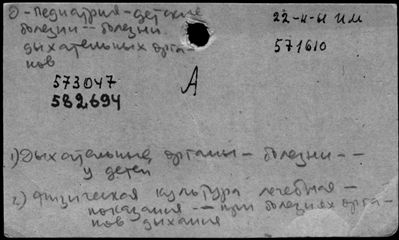 О-педиатрия-детские
болезни -- болезни
дыхательных орга-
нов
22-н-ы им
571610
573047
582694
А
1) Дыхательные органы - болезни --
у детей
2) Физическая культура лечебная -
показания -- при болезнях орга-
нов дыхания